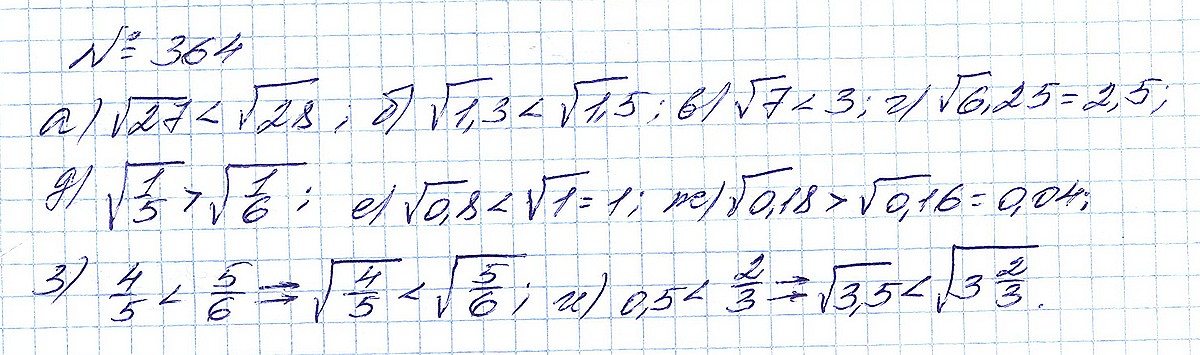 № 364
а) √27 < √28; б) √1,3 < √1,5; в) √7 < 3; г) √6,25 = 2,5;
д) √(1/5) > √(1/6); е) √0,8 < √1 = 1; ж) √0,18 > √0,16 = 0,04;
з) 4/5 < 5/6 ⇒ √(4/5) < √(5/6); и) 0,5 < 2/3 ⇒ √3,5 < √(3 2/3).